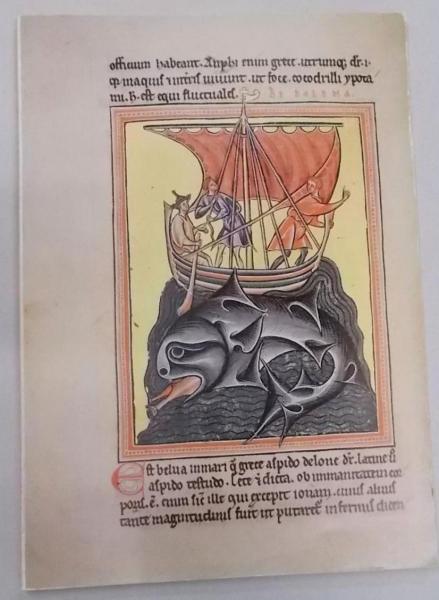 officium habeant. Amphi enim grece. utrumq; dr. i.
q̄ in aquis ⁊ in t̄ris uiuunt. ut foce. cocodrilli ypota
mi. h. est equi fluctuales.
DE BALENA
Est belua in mari q̄ grece aspido delone dr̄. latine ū
aspido testudo. Cete ⁊ dicta. ob immanitatem cor
poris. ē. enim sic̄ ille qui excepit ionam. cuius aluus
tante magnitudinis fuit ut putaretr̄ infernus dicen